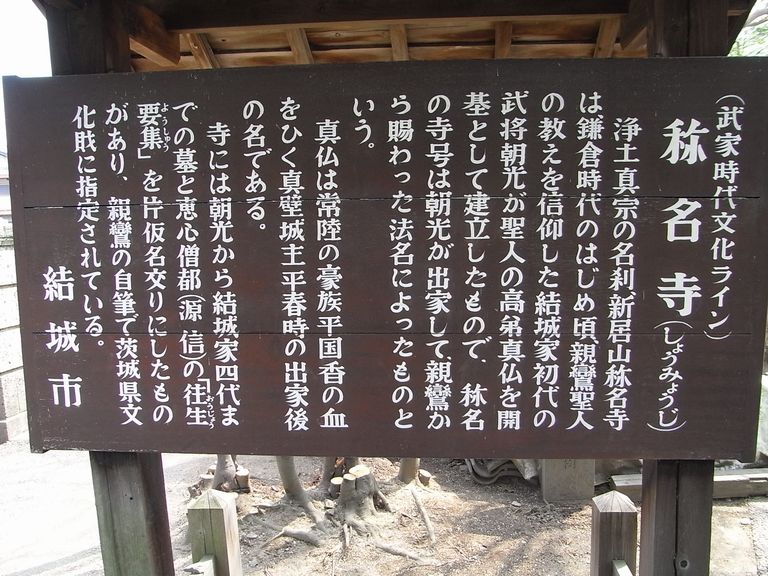 (武家時代文化ライン)
称名寺(しょうみょうじ)
浄土真宗の名刹、新居山称名寺
は鎌倉時代のはじめ頃、親鸞聖人
の教えを信仰した結城家初代の
武将朝光が聖人の高弟真仏を開
基として建立したもので、称名
の寺号は朝光が出家して、親鸞か
ら賜わった法名によったものと
いう。
真仏は常陸の豪族平国香の血
をひく真壁城主平春時の出家後
の名である。
寺には朝光から結城家四代ま
での墓と恵心僧都(源信)の「往生
おうじょう
要集」を片仮名交りにしたもの
ようしゅう
があり、親鸞の自筆で茨城県文
化財に指定されている。
結城市